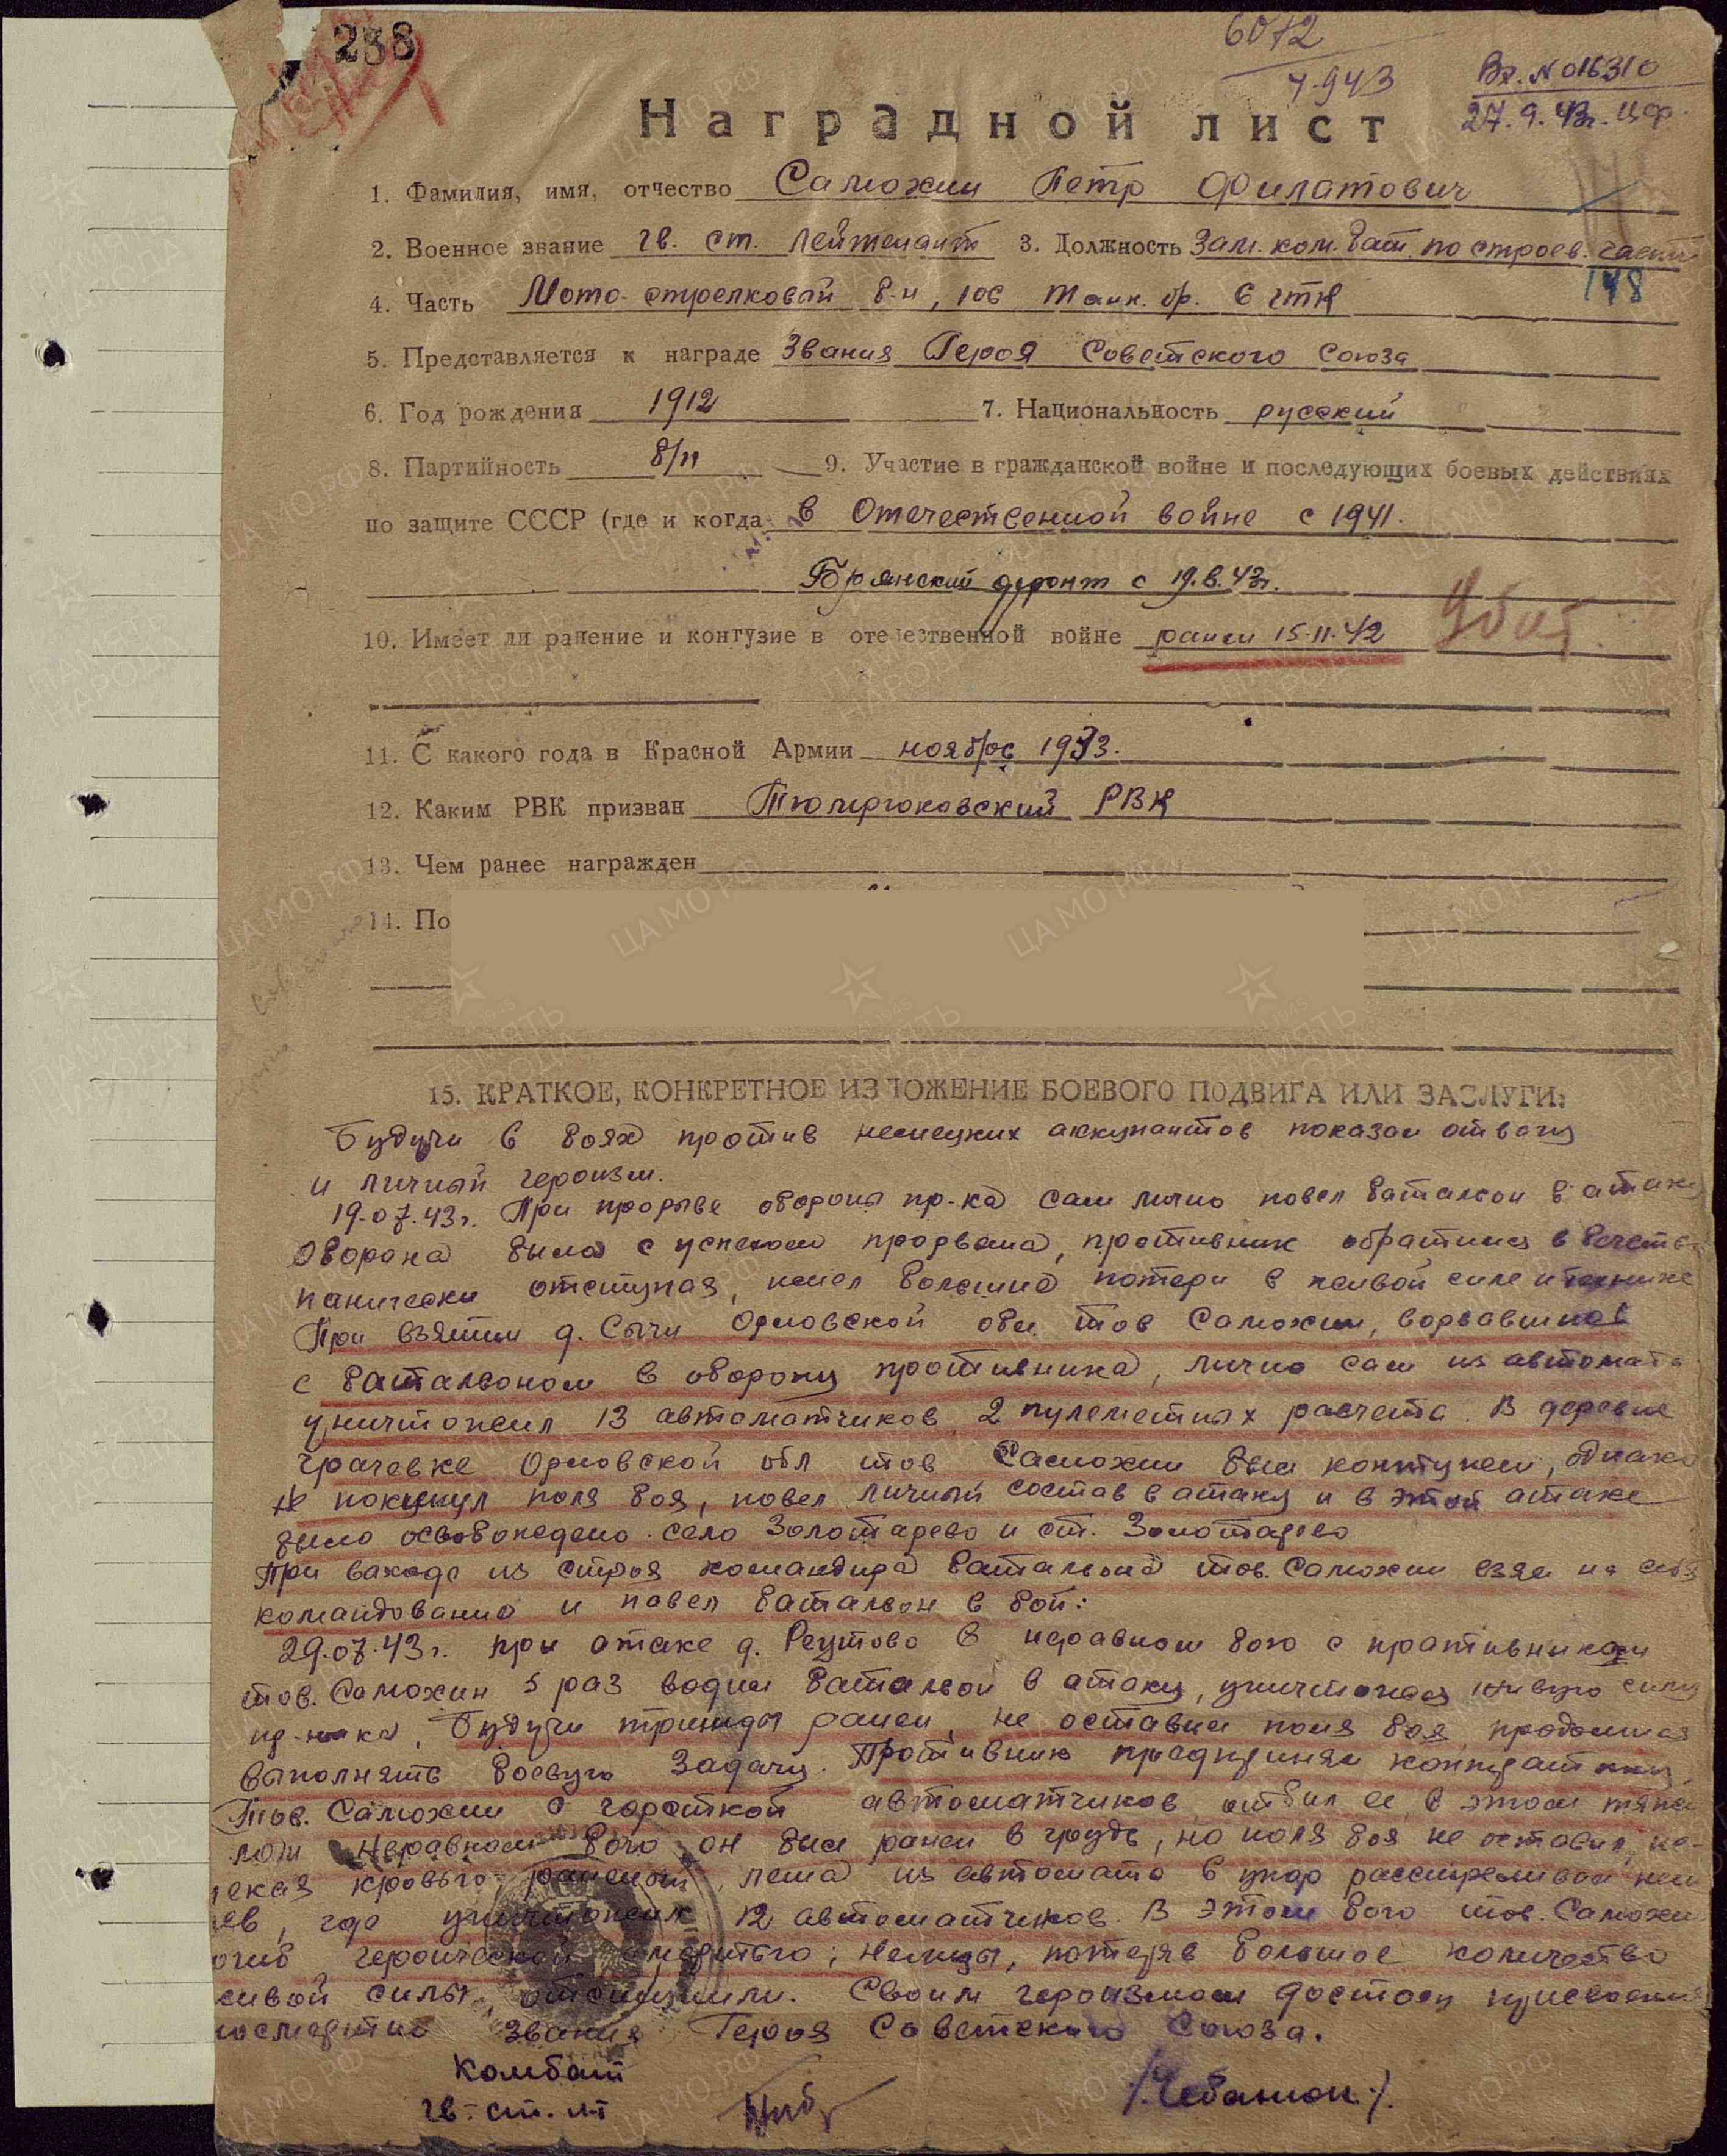 238
6072
7.943
Вх. N 016310
27.9.43г.
Наградной лист
1. Фамилия, имя, отчество Самохин Петр Филатович
2. Военное звание гв. ст. лейтенант 3. Должность Зам. ком. бат по строев. части
148
4. Часть Мото-стрелковый б-н, 106 танк. бр. 6 гтк
5. Представляется к награде Звания Героя Советского Союза
6. Год рождения 1912 7. Национальность русский
8. Партийность б/п 9. Участие в гражданской войне и последующих боевых действиях
по защите СССР (где и когда в Отечественной войне с 1941.
Брянский фронт с 19.6.43г.
10. Имеет ли ранение и контузие в отечественной войне ранен 15.11.42 Убит.
11. С какого года в Красной Армии ноябрь 1933.
12. Каким РВК призван Темрюковский РВК
13. Чем ранее награжден
14. По
15. КРАТКОЕ, КОНКРЕТНОЕ ИЗЛОЖЕНИЕ БОЕВОГО ПОДВИГА ИЛИ ЗАСЛУГИ:
Будучи в боях против немецких аккупантов показал отвагу
и личный героизм.
19.07.43г. При прорыве обороны пр-ка сам лично повел баталион в атаку
Оборона была с успехом прорвана, противник обратился в бегство
панически отступая, имел большие потери в живой силе и технике
При взятии д. Сычи Орловской обл тов Самохин, ворвавшись
с батальоном в оборону противника, лично сам из автомата
уничтожил 13 автоматчиков 2 пулеметных расчета. В деревне
Грачевке Орловской обл тов Самохин был контужен, однако
не покинул поля боя, повел личный состав в атаку и в этой атаке
было освобождено село Золотарево и ст. Золотарево
При выходе из строя командира батальона тов. Самохин взял на себя
командование и повел батальон в бой:
29.07.43г. при атаке д. Реутово в неравном бою с противником
тов. Самохин 5 раз водил батальон в атаку, уничтожая живую силу
пр-ника. Будучи трижды ранен, не оставил поля боя, продолжая
выполнять боевую задачу. Противник предпринял контратаку.
Тов. Самохин с горсткой автоматчиков отбил ее, в этом тяже
лом неравном бою он был ранен в грудь, но поля боя не оставил, ис-
текая кровью, раненый, лежа из автомата в упор расстреливал нем
цев, где уничтожил 12 автоматчиков. В этом бою тов. Самохин
погиб героической смертью; Немцы, потеряв большое количество
живой силы, отступили. Своим героизмом достоен присвоения
посмертно звания Героя Советского Союза.
Комбат
гв. ст. л-т /Чебанюк./
ЦА МО РФ
ПАМЯТЬ НАРОДА